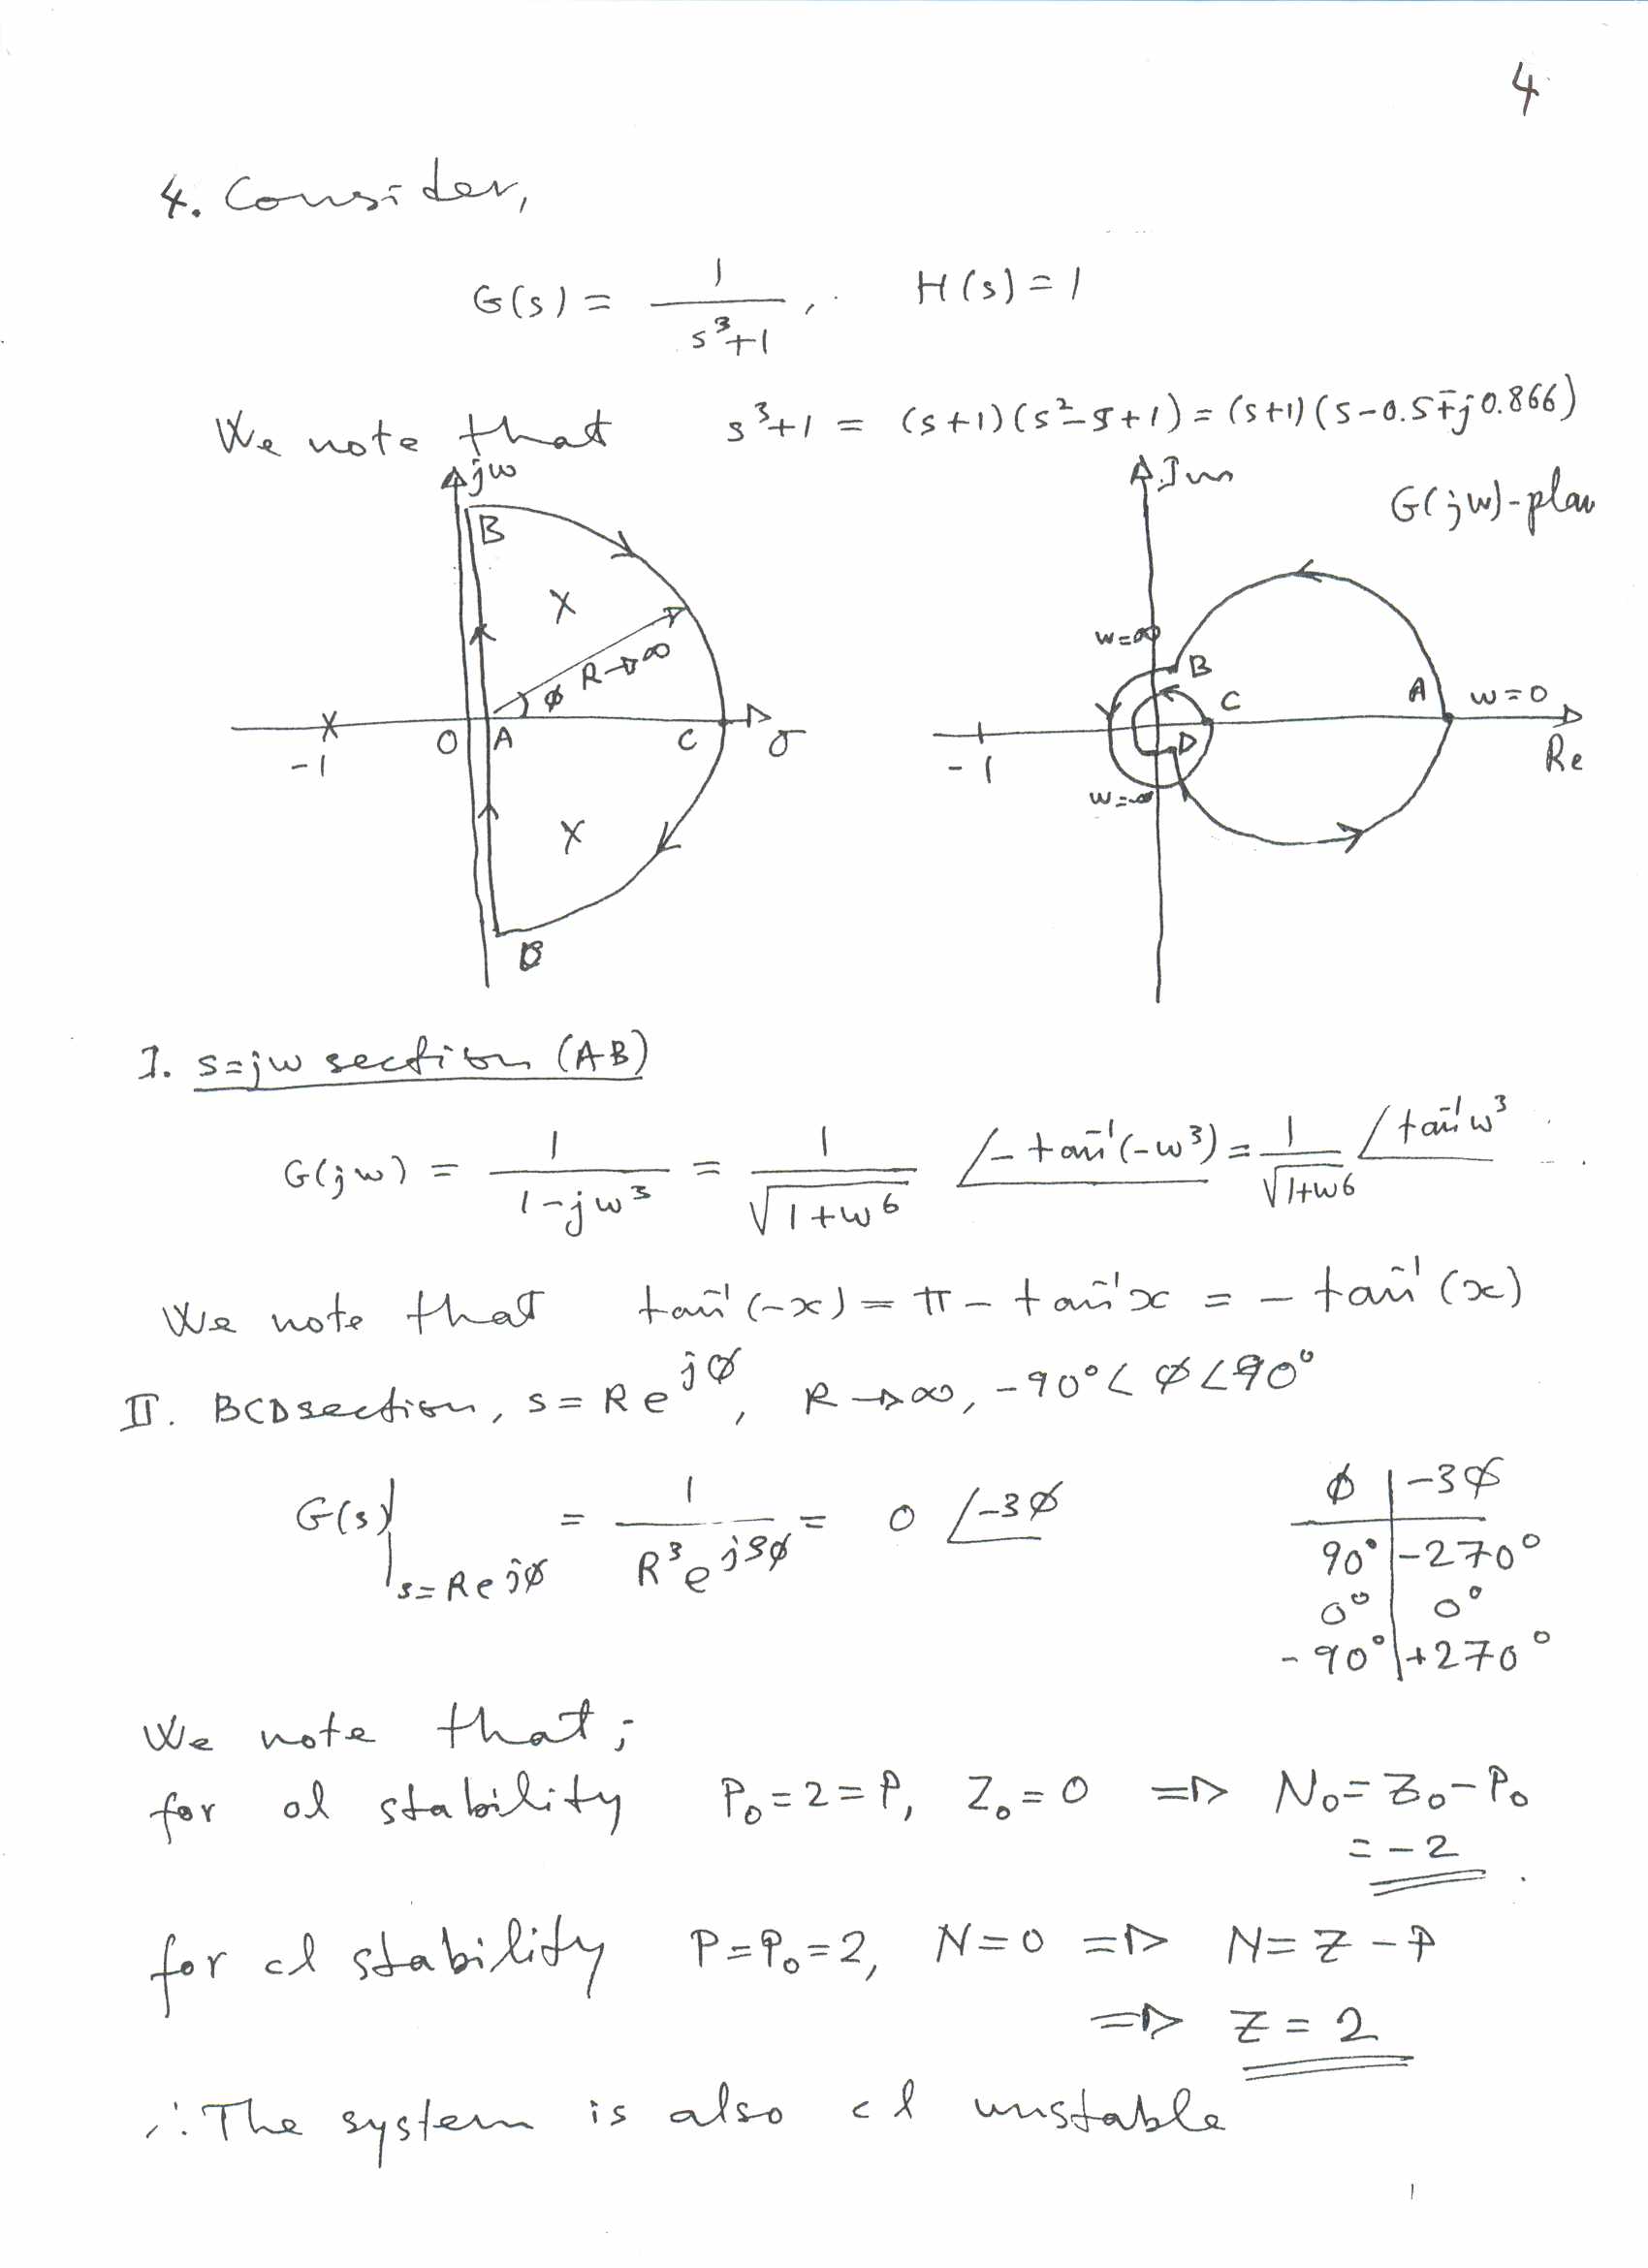 4
4. Consider,
G(s) = 1/(s³+1), H(s) = 1
We note that s³+1 = (s+1)(s²-s+1) = (s+1)(s-0.5∓j0.866)
jω
B
φ R→∞
-1 O A C σ
B
Im
G(jω)-plan
ω=∞
B
C A ω=0
-1 D Re
ω=-∞
I. s=jω section (AB)
G(jω) = 1/(1-jω³) = 1/√(1+ω⁶) ∠-tan⁻¹(-ω³) = 1/√(1+ω⁶) ∠tan⁻¹ω³
We note that tan⁻¹(-x) = π - tan⁻¹x = - tan⁻¹(x)
II. BCD section, s = Re^jφ, R→∞, -90° < φ < 90°
G(s)|s=Re^jφ = 1/(R³e^j3φ) = 0 ∠-3φ
φ | -3φ
90° | -270°
0° | 0°
-90° | +270°
We note that;
for ol stability P₀ = 2 = P, Z₀ = 0 ⇒ N₀ = Z₀ - P₀
= -2
for cl stability P = P₀ = 2, N = 0 ⇒ N = Z - P
⇒ Z = 2
∴ The system is also cl unstable